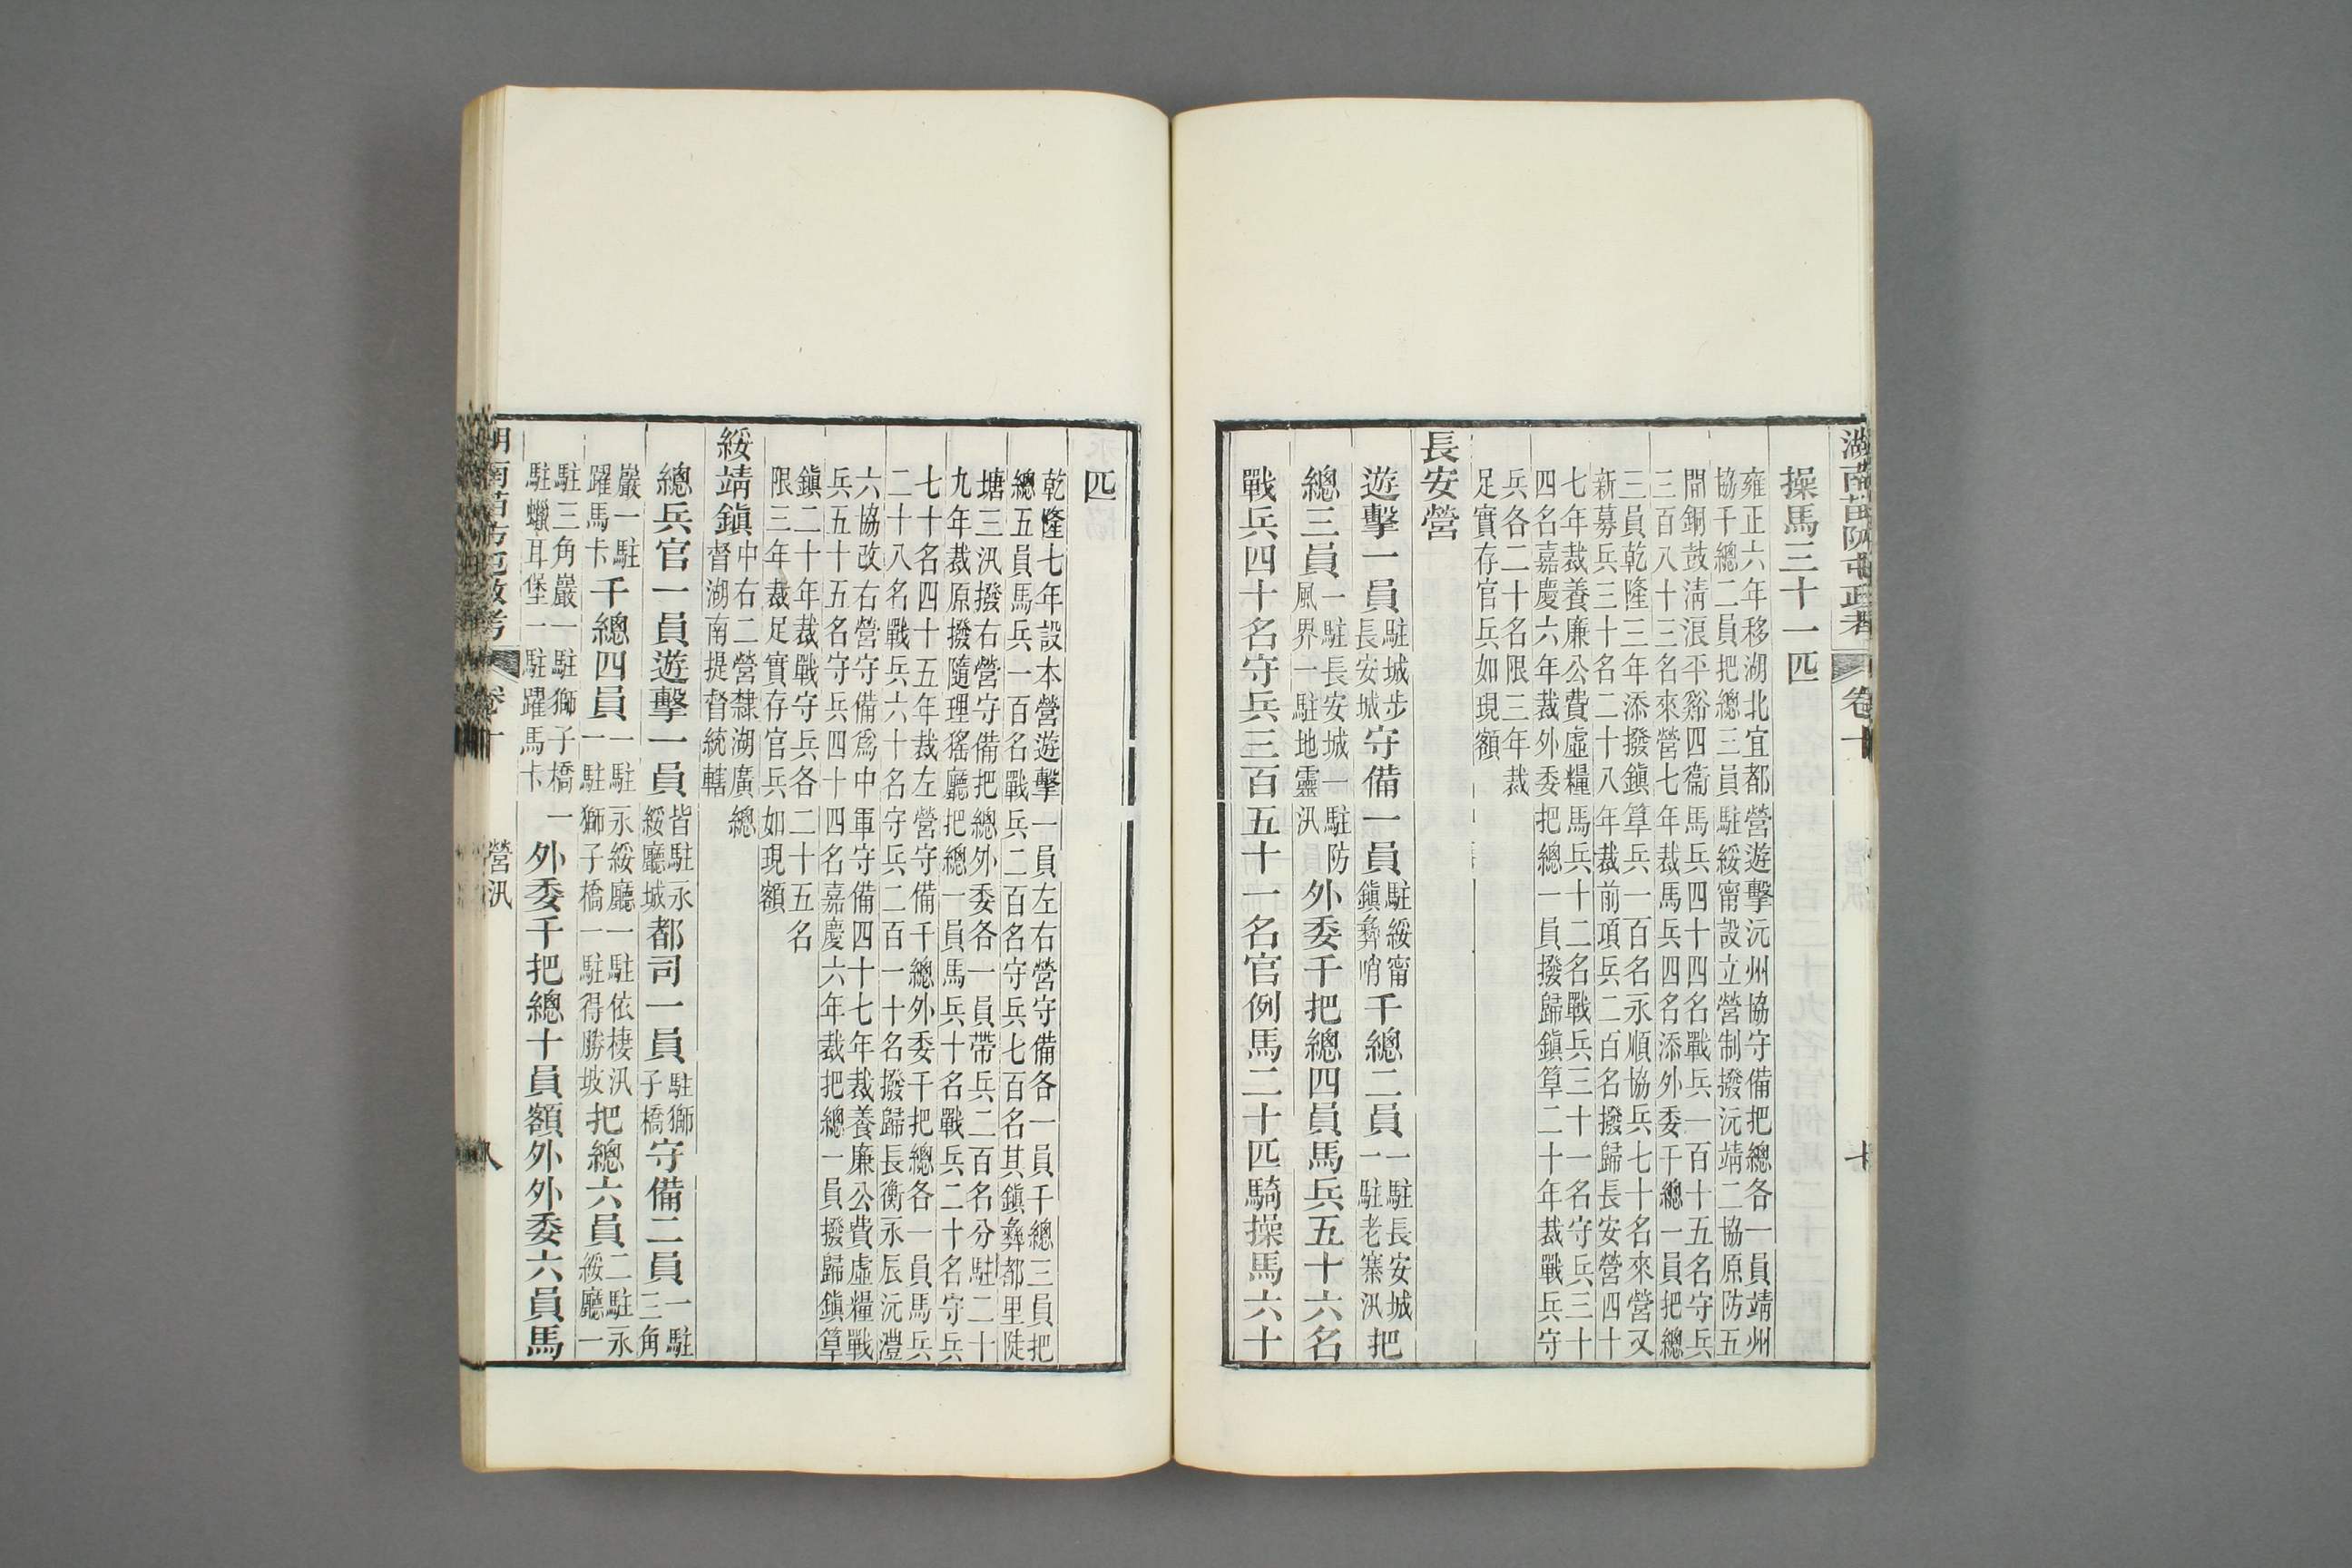 湖南苗防屯政考
卷十
七
操馬三十一匹
雍正六年移湖北宜都營遊擊沅州協守備把總各一員靖州
協千總二員把總三員駐綏甯設立營制撥沅靖二協原防五
開銅鼓淸浪平谿四衞馬兵四十四名戰兵一百十五名守兵
三百八十三名來營七年裁馬兵四名添外委千總一員把總
三員乾隆三年添撥鎭筸兵一百名永順協兵七十名來營又
新募兵三十名二十八年裁前項兵二百名撥歸長安營四十
七年裁養廉公費虛糧馬兵十二名戰兵三十一名守兵三十
四名嘉慶六年裁外委把總一員撥歸鎭筸二十年裁戰兵守
兵各二十名限三年裁
足實存官兵如現額
長安營
遊擊一員
駐城步
長安城
守備一員
駐綏甯
鎭彝哨
千總二員
一駐長安城
一駐老寨汛
把
總三員
一駐長安城一駐防
風界一駐地靈汛
外委千把總四員馬兵五十六名
戰兵四十名守兵三百五十一名官例馬二十匹騎操馬六十
匹
乾隆七年設本營遊擊一員左右營守備各一員千總三員把
總五員馬兵一百名戰兵二百名守兵七百名其鎭彝都里陡
塘三汛撥右營守備把總外委各一員帶兵二百名分駐二十
九年裁原撥隨理猺廳把總一員馬兵十名戰兵二十名守兵
七十名四十五年裁左營守備千總外委千把總各一員馬兵
二十八名戰兵六十名守兵二百一十名撥歸長衡永辰沅澧
六協改右營守備爲中軍守備四十七年裁養廉公費虛糧戰
兵五十五名守兵四十四名嘉慶六年裁把總一員撥歸鎭筸
鎭二十年裁戰守兵各二十五名
限三年裁足實存官兵如現額
綏靖鎭
中右二營隸湖廣總
督湖南提督統轄
總兵官一員遊擊一員
皆駐永
綏廳城
都司一員
駐獅
子橋
守備二員
一駐
三角
巖一駐
躍馬卡
千總四員
一駐永綏廳一駐依棲汛
一駐獅子橋一駐得勝坡
把總六員
二駐永
綏廳一
駐三角巖一駐獅子橋一
駐蠟耳堡一駐躍馬卡
外委千把總十員額外外委六員馬
湖南苗防屯政考
卷十
營汛
八